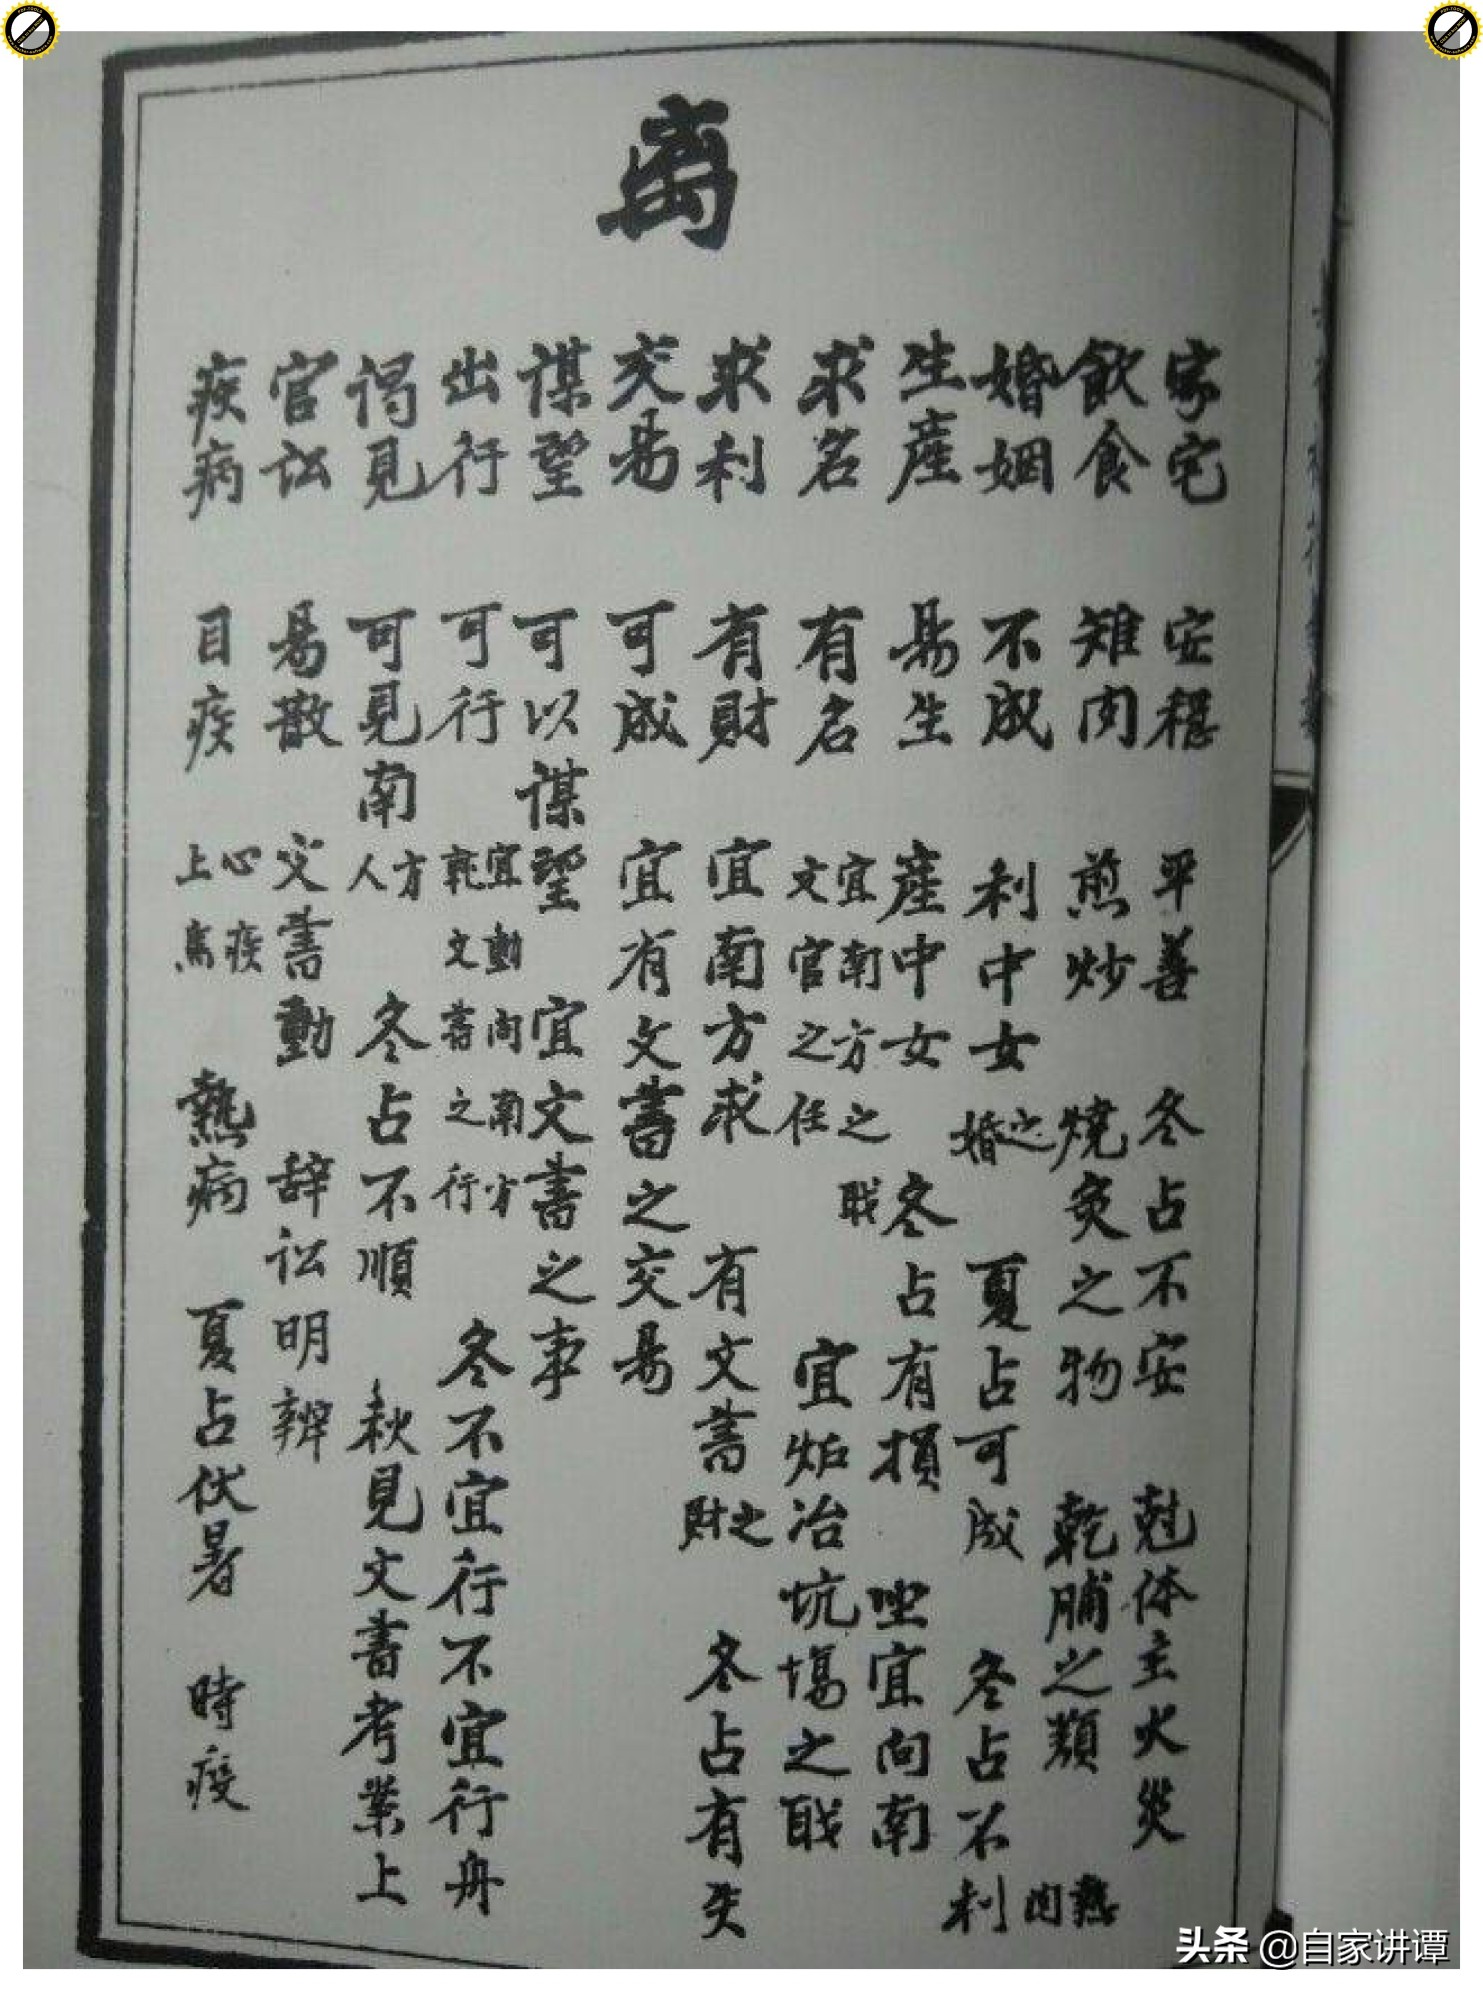 离
家宅 安穏 平善 冬占不安 尅体主火災
飲食 雉肉 煎炒 燒炙之物 乾脯之類 熱肉
婚姻 不成 利中女之婚 夏占可成 冬占不利
生産 易生 産中女 冬占有損 坐宜向南
求名 有名 宜南方之職 文官之任 宜炉冶坑塲之職
求利 有財 宜南方求 有文書之財 冬占有失
交易 可成 宜有文書之交易
謀望 可以謀望 宜文書之事
出行 可行 宜動向南方 乾文書之行 冬不宜行不宜行舟
谒見 可見南方人 冬占不順 秋見文書考業上
官訟 易散 文書動 辞訟明辨
疾病 目疾 心疾 上焦 熱病 夏占伏暑 時疫
头条 @自家讲谭